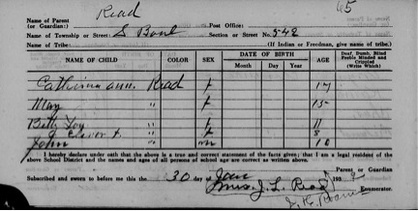 Read 65
Name of Parent
(or Guardian:) Post Office:
Name of Township or Street: S Boul Section or Street No. 542
Name of Tribe: (If Indian or Freedman, give name of tribe.)
NAME OF CHILD COLOR SEX DATE OF BIRTH AGE Deaf, Dumb, Blind Feeble Minded and Crippled (Write Which)
Month Day Year
Catherine ann. Read " f 17
May " f 15
Betty Joy " f 11
" f 8
John " m 10
I hereby declare under oath that the above is a true and correct statement of the facts given; that I am a legal resident of the
above School District and the names and ages of persons of school age are correct as written above.
Parent or Guardian
Subscribed and sworn to before me this the 30 day of Jan 19
Mrs. J. L. Read
Enumerator.